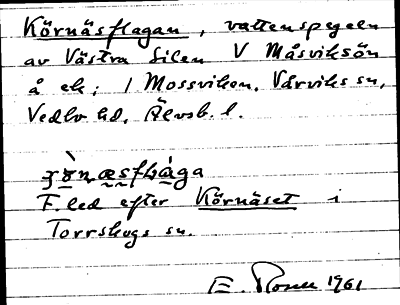 Körnäsflagan, vattenspegeln
av Västra Silen V Måsviksön
å ek; i Mossviken, Vårviks sn,
Vedbo hd, Älvsb. l.
F. led efter Körnäset i
Torrskogs sn.
E. 1961